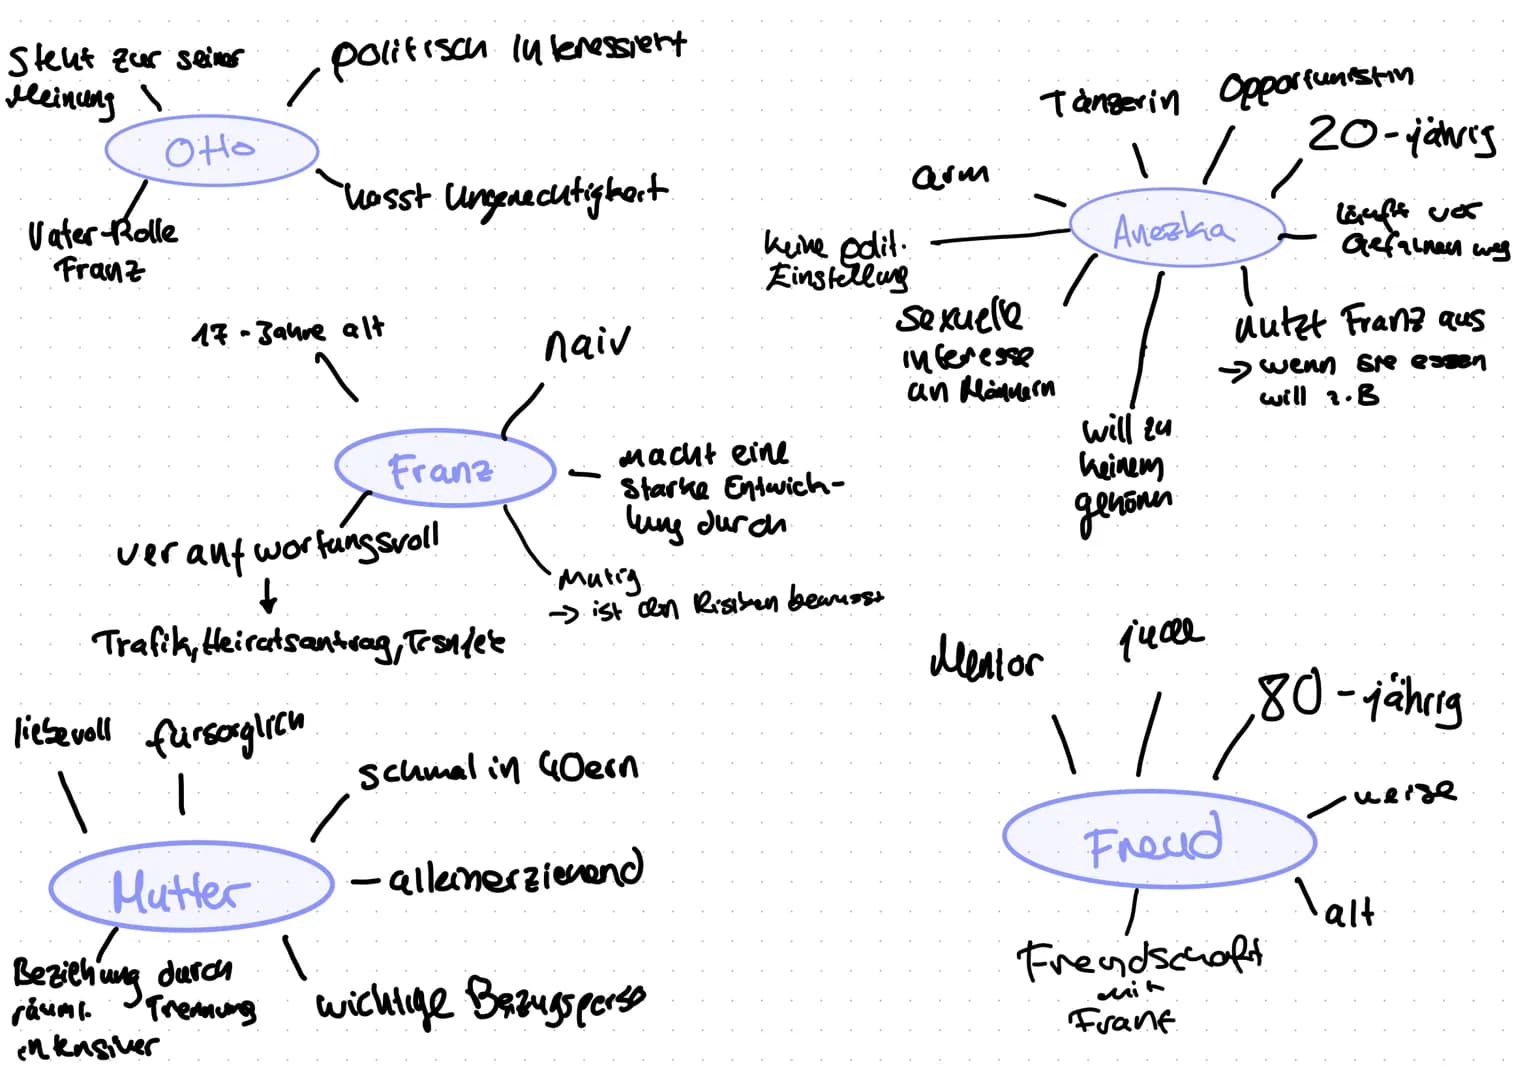 Steht zur seiner
Meinung
politisch Interessiert
Otto
hasst Ungerechtigkeit
Vater-Rolle
Franz
Tänzerin
Opportunistin
20-jährig
arm
Anezka
läuft vor
Gefahren weg
keine polit.
Einstellung
sexuelle
interesse
an Männern
will zu
keinem
gehören
nutzt Franz aus
→ wenn sie essen
will z.B
17-Jahre alt
naiv
Franz
macht eine
starke Entwick-
lung durch
verantwortungsvoll
Mutig
→ ist den Risiken bewusst
Trafik, Heiratsantrag,
liebevoll
fürsorglich
schmal in 40ern
Mutter
alleinerziehend
Beziehung durch
räuml. Trennung
intensiver
wichtige Bezugsperso
Mentor
jude
80-jährig
Freud
weise
alt
Freundschaft
mit
Franz